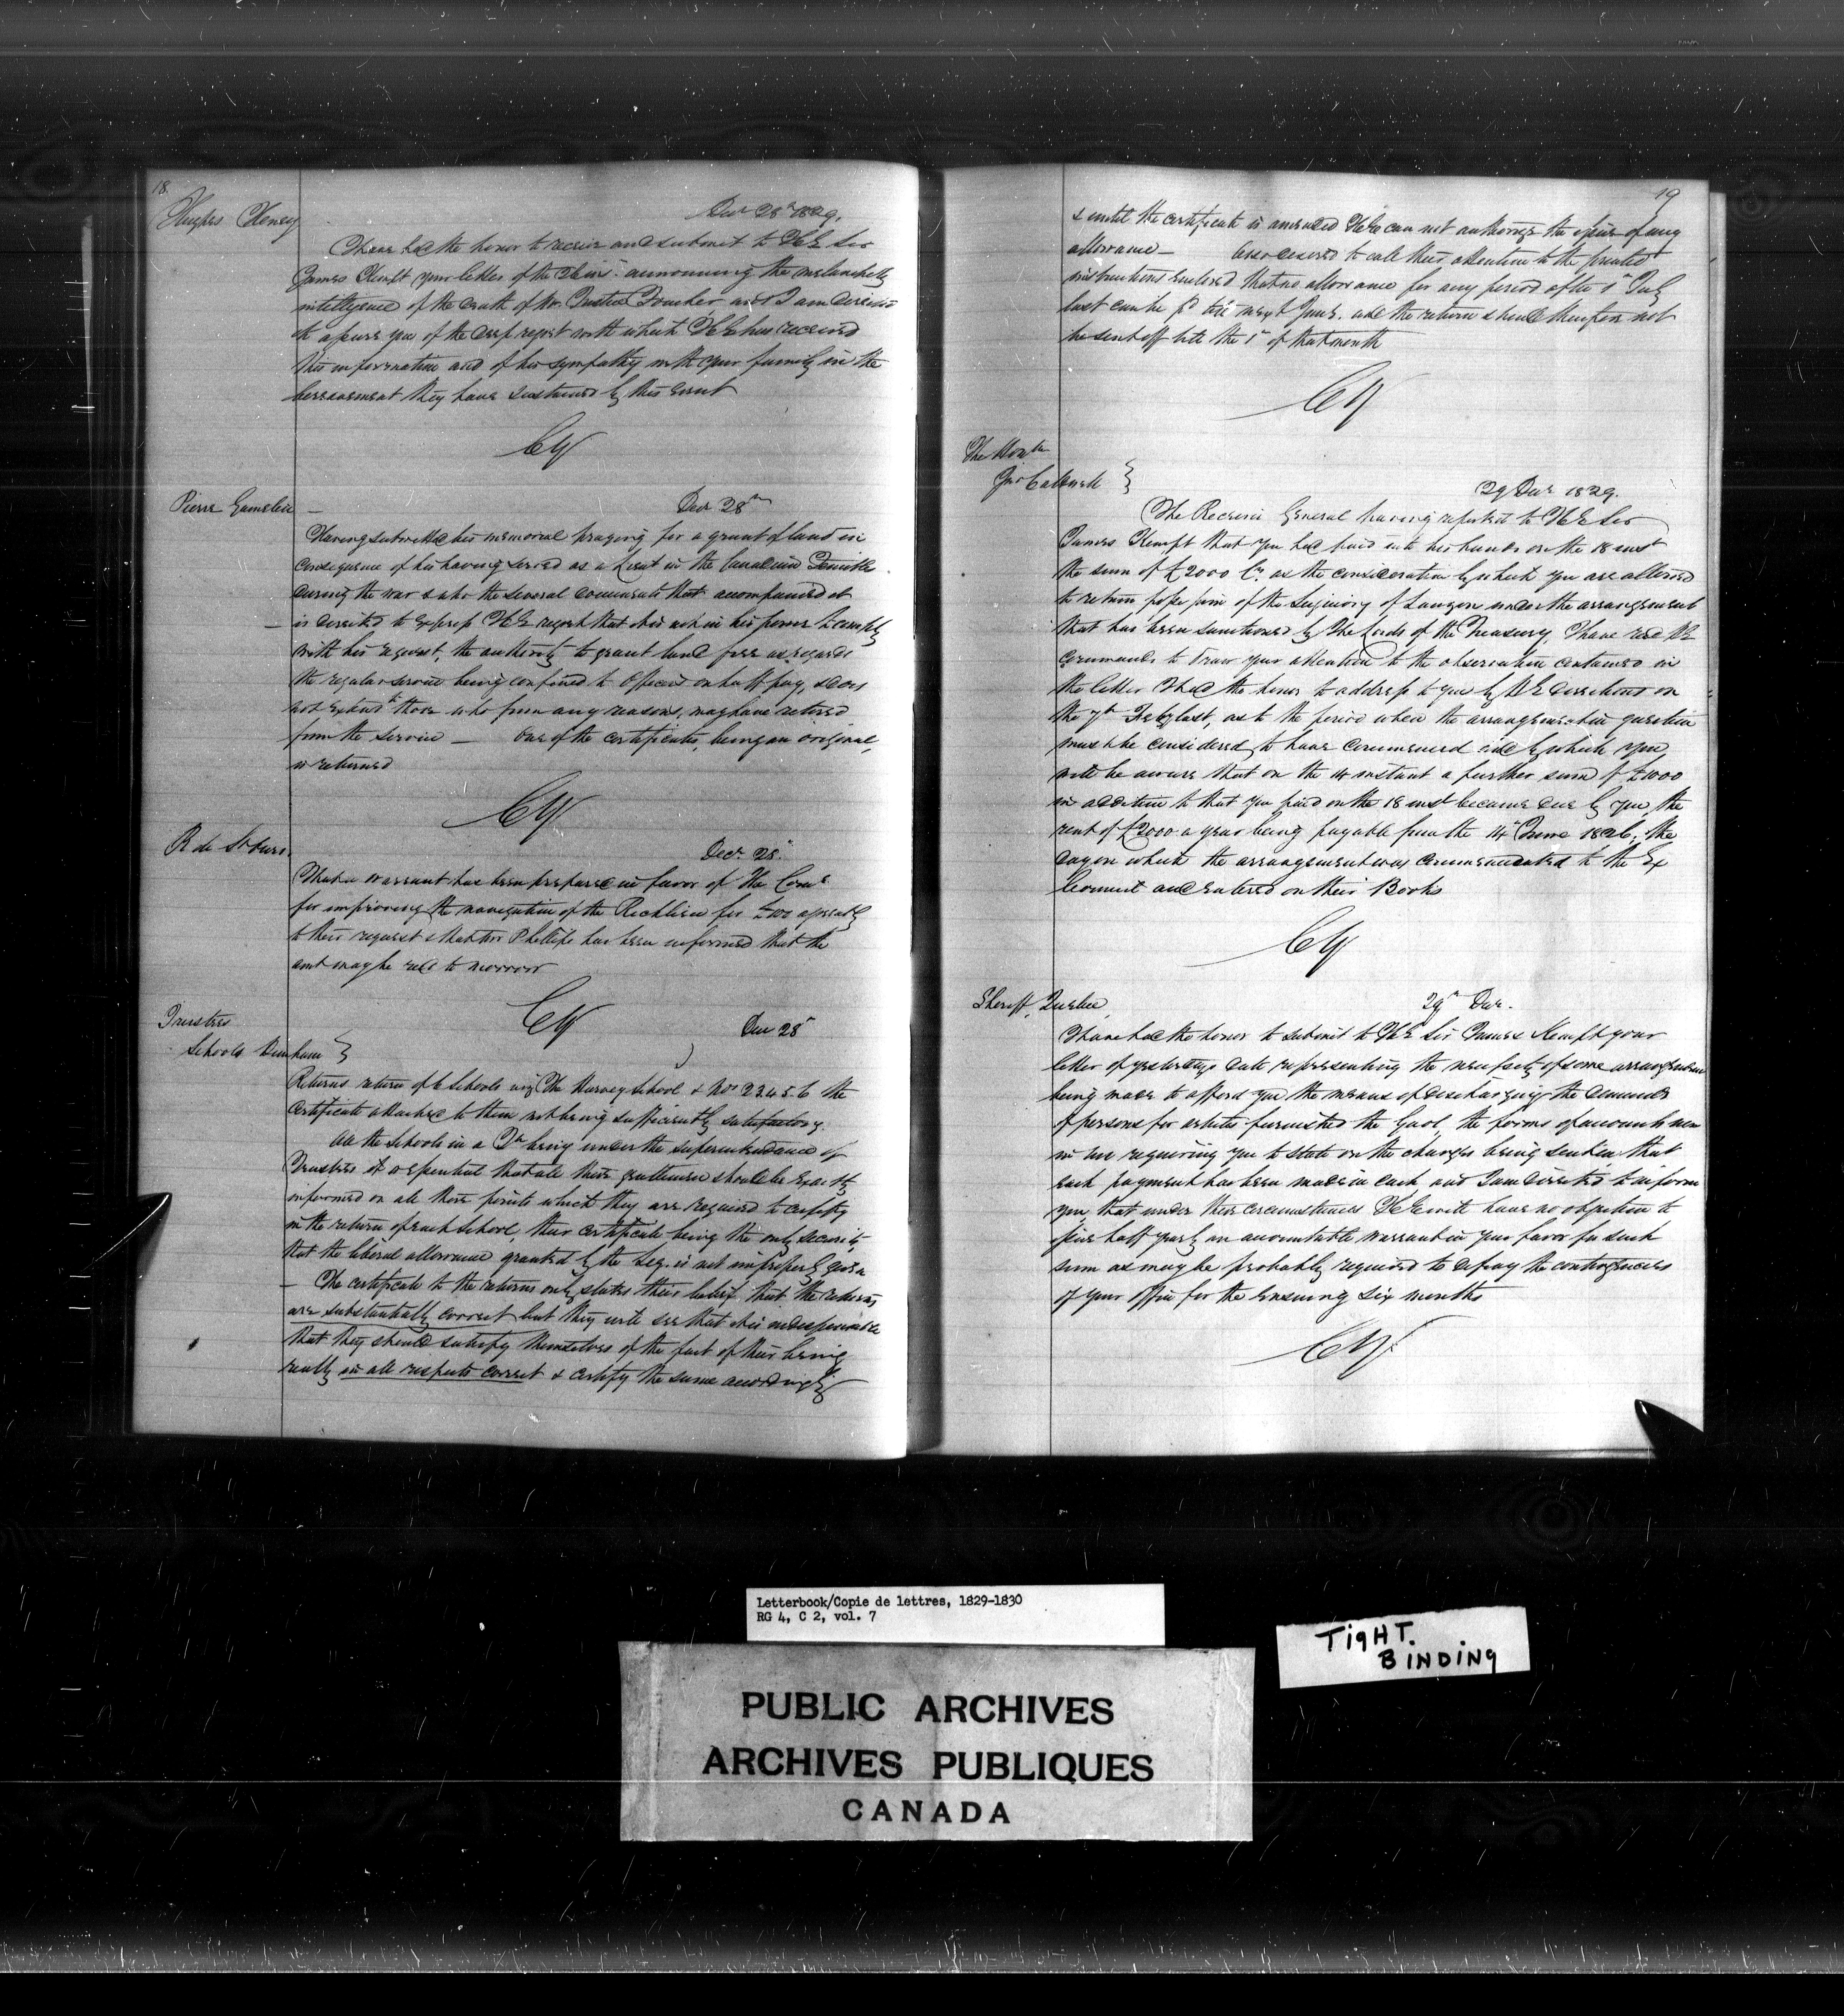 18.
Hughes Heney
Decr 28th 1829.
I have had the honor to receive and submit to H E Sir
James Kempt your letter of the 26 inst. announcing the melancholy
intelligence of the death of Mr Justice Foucher and I am directed
to assure you of the deep regret with which H E has received
this information and of his sympathy with your family in the
bereavement they have sustained by this event
CY
Pierre Gamelin —
Decr 28th
Having submitted his memorial praying for a grant of land in
consequence of his having served as a Lieut in the Canadian
during the war & also the several documents that accompanied it
is directed to express H E regret that it is not in his power to comply
with his request, the authority to grant land free as regards
the regular service being confined to Officers on half pay, & does
not extend to those who from any reasons, may have retired
from the service — One of the certificates, being an original,
is returned
CY
R de St Ours.
Decr 28.
That a warrant has been prepared in favor of the Comrs
for improving the navigation of the Richlieu for £100 agreeably
to their request & that Mr Phillips has been informed that the
amt may be recd to morrow
CY
Trustees
Schools Dunham }
Decr 28
Returns return of 6 Schools viz The Harvey School & Nos 2 3. 4. 5. 6 the
certificate attached to them not being sufficiently satisfactory.
All the Schools in a Tp being under the superintendance of
Trustees it is essential that all these gentlemen should be exactly
informed on all those points which they are required to certify
in the return of each School, their certificate being the only security
that the liberal allowance granted by the Leg. is not improperly given
— The certificate to the returns only states their belief that the returns
are substantially correct but they will see that it is indispensable
that they should satisfy themselves of the fact of their being
really in all respects correct & certify the same accordingly
19
& until the certificate is amended H E can not authorize the issue of any
allowance — Also desired to call their attention to the printed
instructions enclosed that no allowance for any period after 1st July
last can be pd till next June. and the return should therefore not
be sent off till the 1st of that month
CY
The Honble
Jno Caldwell }
29 Decr 1829.
The Receiver General having reported to H E Sir
James Kempt that you had paid into his hands on the 18 inst
the sum of £2000 Cy. as the consideration by which you are allowed
to retain possession of the Seigniory of Lauzon under the arrangement
that has been sanctioned by the Lords of the Treasury, I have recd H E
commands to draw your attention to the observation contained in
the letter I had the honor to address to you by H E directions on
the 7th Feby last, as to the period when the arrangement in question
must be considered to have commenced and by which you
will be aware that on the 14 instant a further sum of £1000
in addition to that you paid on the 18 inst became due by you, the
rent of £2000 a year being payable from the 14th June 1826, the
day on which the arrangement was communicated to the Ex
Council and entered on their Books
CY
Sheriff, Quebec,
29th Decr.
I have had the honor to submit to H E Sir James Kempt your
letter of yesterdays date representing the necessity of some arrangement
being made to afford you the means of discharging the demands
of persons for articles furnished the Gaol, the forms of accounts now
in use requiring you to state on the charges being sent in that
each payment has been made in cash and I am directed to inform
you that under these circumstances H E will have no objection to
issue half yearly an accountable warrant in your favor for such
sum as may be probably required to defray the contingencies
of your Office for the ensuing six months
CY
Letterbook/Copie de lettres, 1829-1830
RG 4, C 2, vol. 7
TIGHT.
BINDING
PUBLIC ARCHIVES
ARCHIVES PUBLIQUES
CANADA